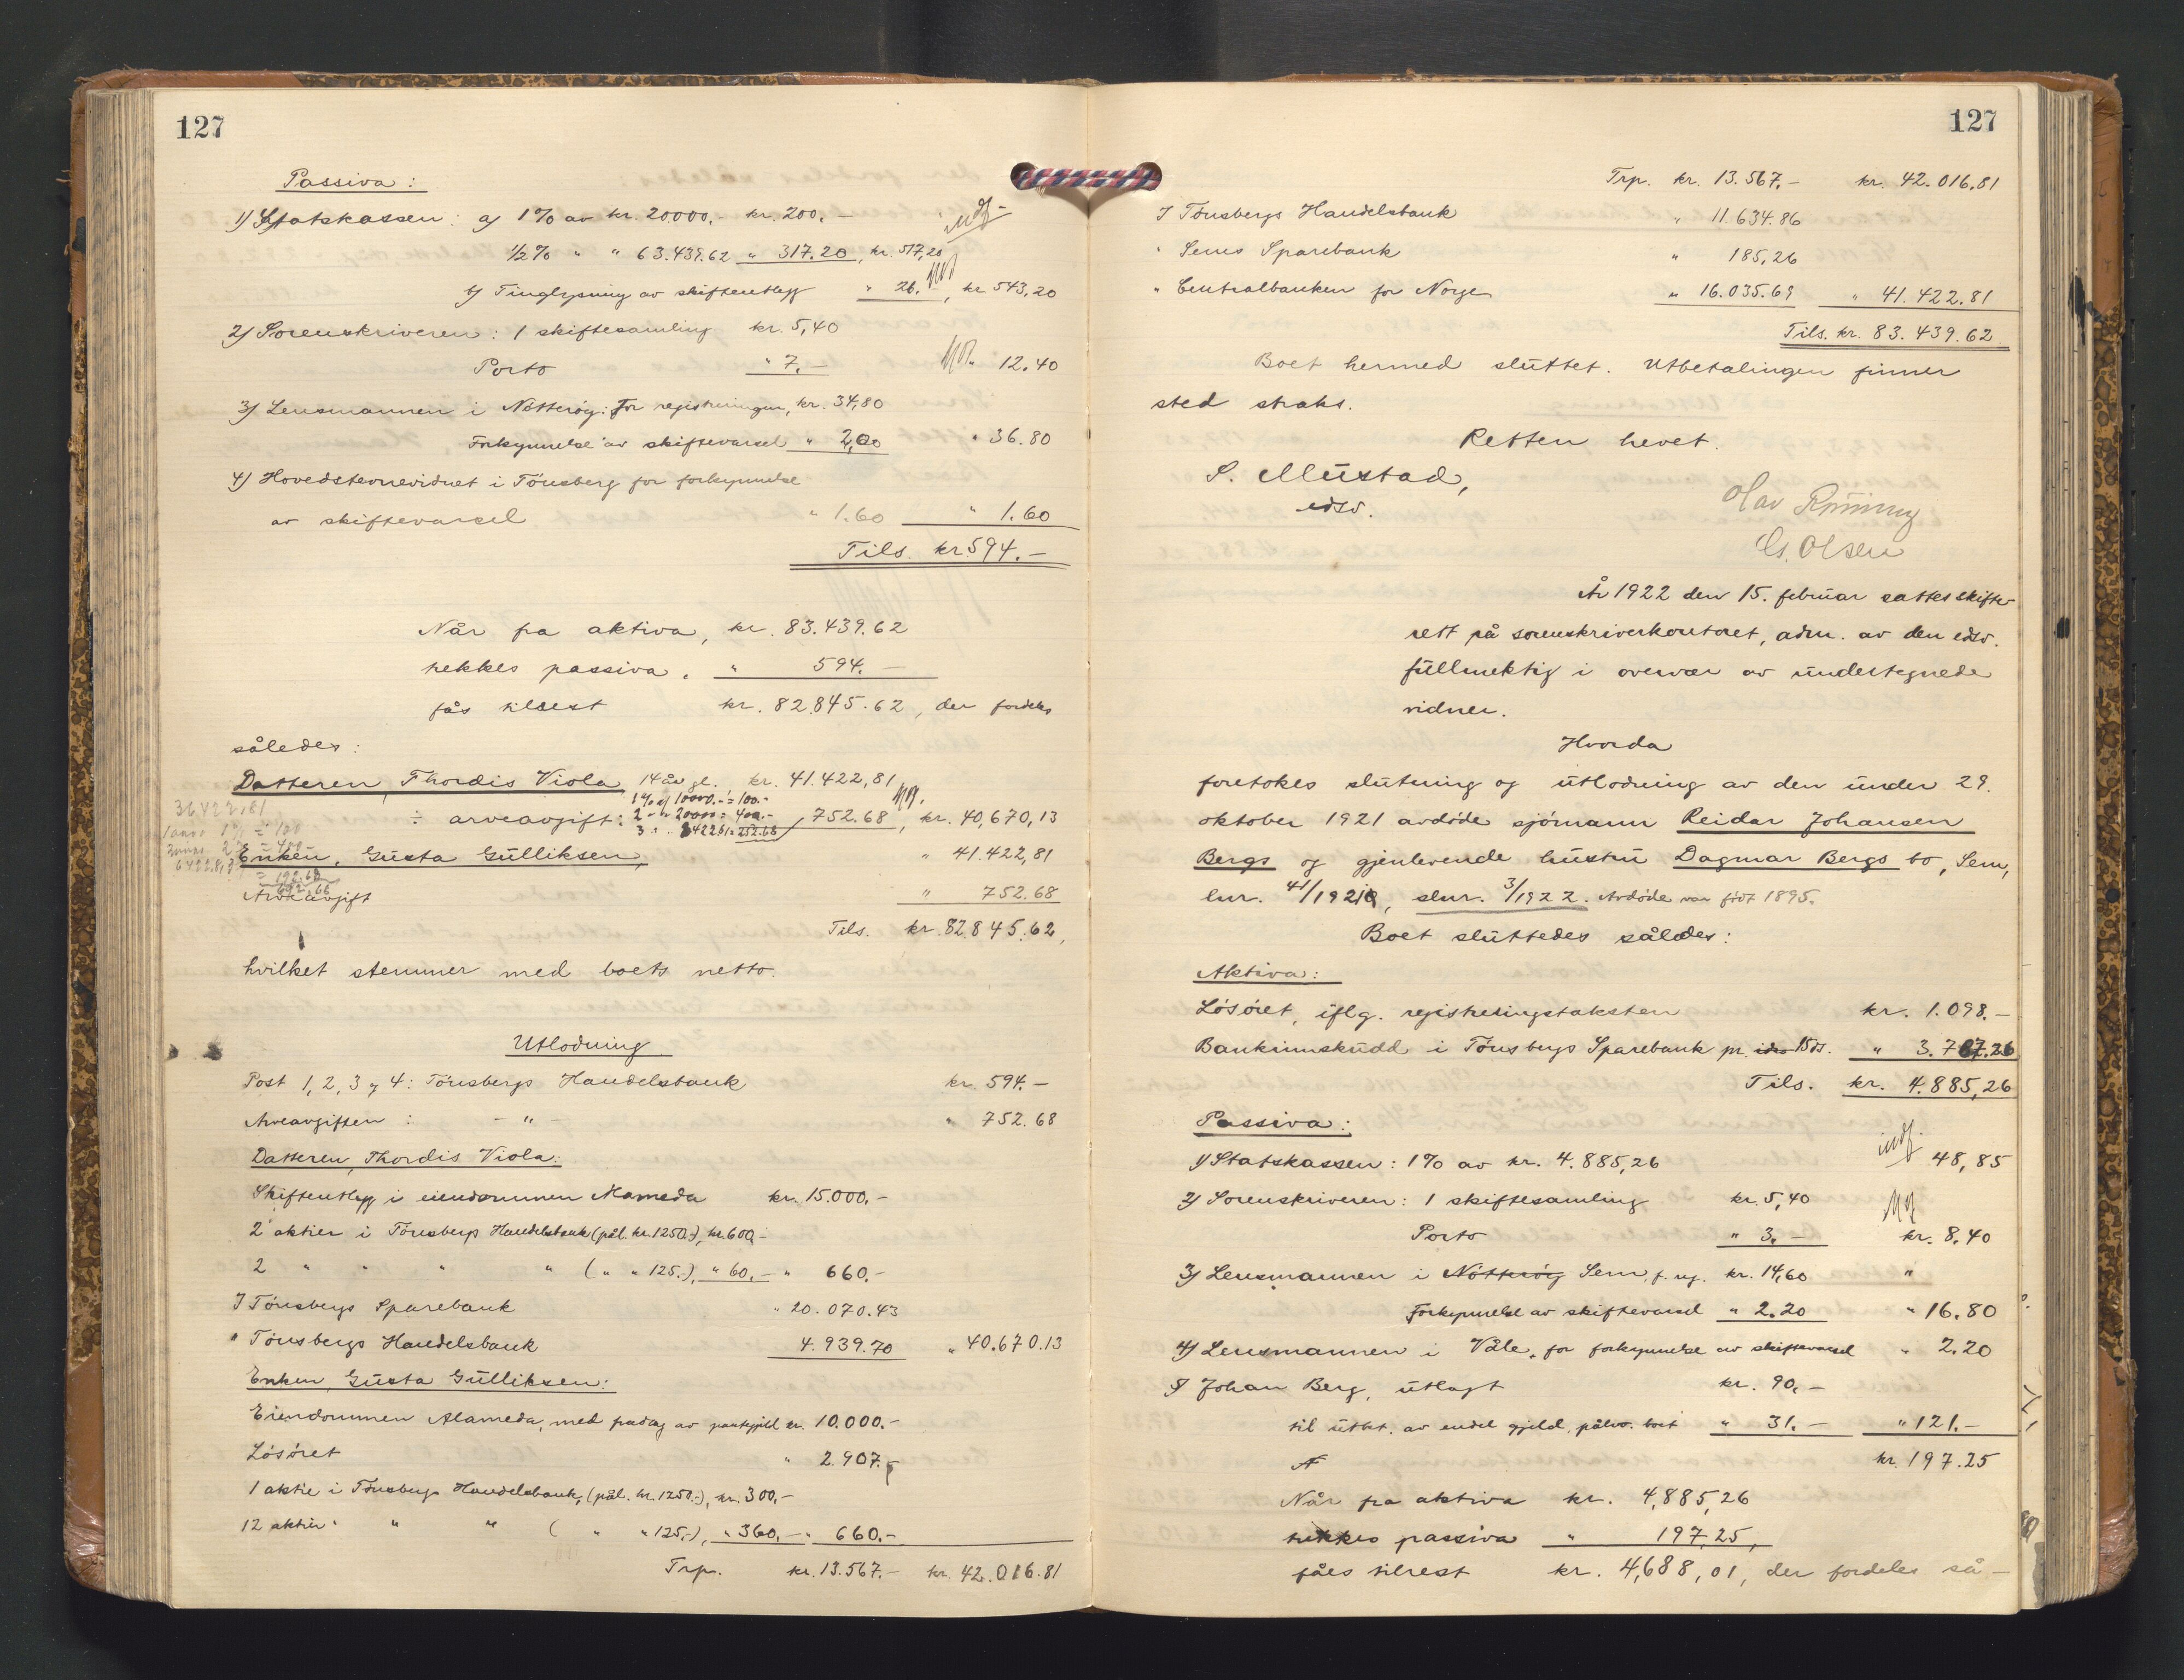 127
Passiva:
1) Statskassen: a) 1% av kr. 20000.- kr. 200.-
1/2% " " 63.439.62 " 317.20, kr. 517,20
b) Tinglysning av skifteutlegg " 26.-, kr 543,20
2) Sorenskriveren: 1 skiftesamling kr. 5,40
Porto " 7.- " 12.40
3) Lensmannen i Nøtterøy: For registreringen, kr. 34,80
Forkynnelse av skiftevarsel " 2,00 " 36.80
4) Hovedstevnevidnet i Tönsberg for forkynnelse
av skiftevarsel " 1.60 " 1.60
Tils. kr 594.-
Når fra aktiva, kr. 83.439.62
trekkes passiva, " 594.-
fås tilrest kr. 82.845.62, der fordeles
således:
Datteren, Thordis Viola 14 år gl. kr. 41.422,81
1% af 10000.- = 100.-
÷ arveavgift: 2 " " 20000 = 400.- 752.68, kr. 40,670,13
3 " " 8422.81 = 252.68
36422,81
Enken, Gusta Gulliksen, " 41.422,81
192.68
692,68
Arveavgift " 752.68
Tils. kr. 82.845.62,
hvilket stemmer med boets netto.
Utlodning
Post 1, 2, 3 og 4: Tönsbergs Handelsbank kr. 594.-
Arveavgiften: - " - " 752.68
Datteren, Thordis Viola:
Skifteutlegg i eiendommen Alameda kr. 15.000.-
2 aktier i Tönsbergs Handelsbank (pål. kr. 1250.-), kr. 600.-
2 " " " " ( " " 125.-), " 60.- " 660.-
I Tönsbergs Sparebank " 20.070.43
" Tönsbergs Handelsbank 4.939.70 " 40.670.13
Enken, Gusta Gulliksen:
Eiendommen Alameda, med fradrag av pantegjeld kr. 10.000.-
Lösöret " 2.907.-
1 aktie i Tönsbergs Handelsbank, (pål. kr. 1250.-), kr. 300.-
12 aktier " " " ( " " 125.-), " 360.- " 660.-
Trp. kr. 13.567.- kr. 42.016.81
127
Trp. kr. 13.567.- kr. 42.016,81
I Tönsbergs Handelsbank " 11.634.86
" Sems Sparebank " 185,26
" Centralbanken for Norge " 16.035.69 " 41.422.81
Tils. kr. 83.439.62
Boet hermed sluttet. Utbetalingen finner
sted straks.
Retten hevet.
S. Mustad,
edsv.
Olav
Olsen
År 1922 den 15. februar sattes skifte-
rett på sorenskriverkontoret, adm. av den edsv.
fullmektig i overvær av undertegnede
vidner.
Hvorda
foretokes slutning og utlodning av den under 29.
oktober 1921 avdöde sjömann Reidar Johansen
Bergs og gjenlevende hustru Dagmar Bergs bo, Sem,
lnr. 41/1921, slnr. 3/1922. Avdöde var född 1895.
Boet sluttedes således:
Aktiva:
Lösöret, iflg. registreringstaksten kr. 1.098.-
Bankinnskudd i Tönsbergs Sparebank pr. 15 ds. " 3.787.26
Tils. kr. 4.885,26
Passiva:
1) Statskassen: 1% av kr. 4.885,26 48,85
2) Sorenskriveren: 1 skiftesamling kr. 5,40
Porto " 3.- kr. 8.40
3) Lensmannen i Nötteröy Sem, f. reg. kr. 14,60 "
Forkynnelse av skiftevarsel " 2.20 " 16.80
4) Lensmannen i Våle, for forkynnelse av skiftevarsel " 2.20
5) Johan Berg, utlagt kr. 90.-
til utbet. av endel gjeld, påhv. boet " 31.- " 121.-
kr. 197.25
Når fra aktiva kr. 4,885,26
trekkes passiva " 197,25,
fåes tilrest kr. 4,688,01, der fordeles så-